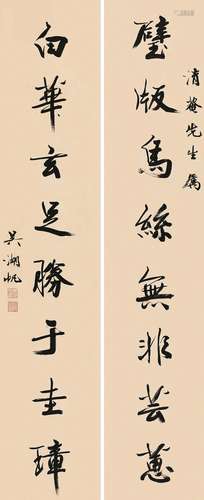 清菴先生属
璧版烏絲無非芸蕙
白華玄足勝于圭璋
吴湖帆